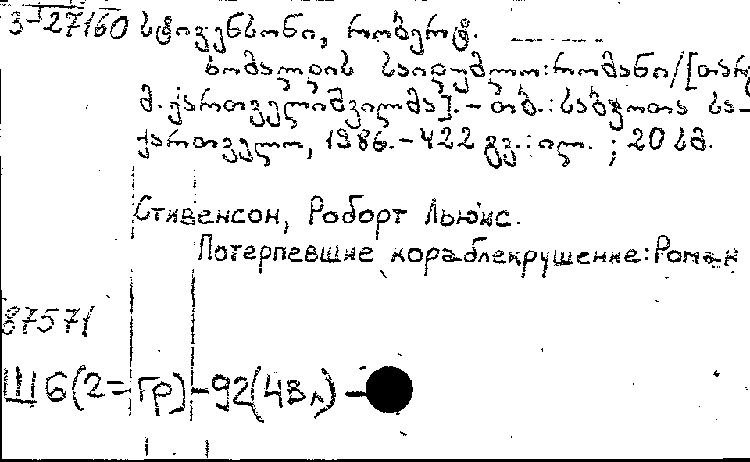 3-27160 სტივენსონი, რობერტ.
ხომალდის საიდუმლო: რომანი/[თარგ
მ. ქართველიშვილმა]. – თბ.: საბჭოთა სა-
ქართველო, 1986. – 422 გვ.: ილ. ; 20 სმ.
Стивенсон, Роборт Льюис.
Потерпевшие кораблекрушение: Роман
87571
Ш6(2=Гр)-92(4Вл) –